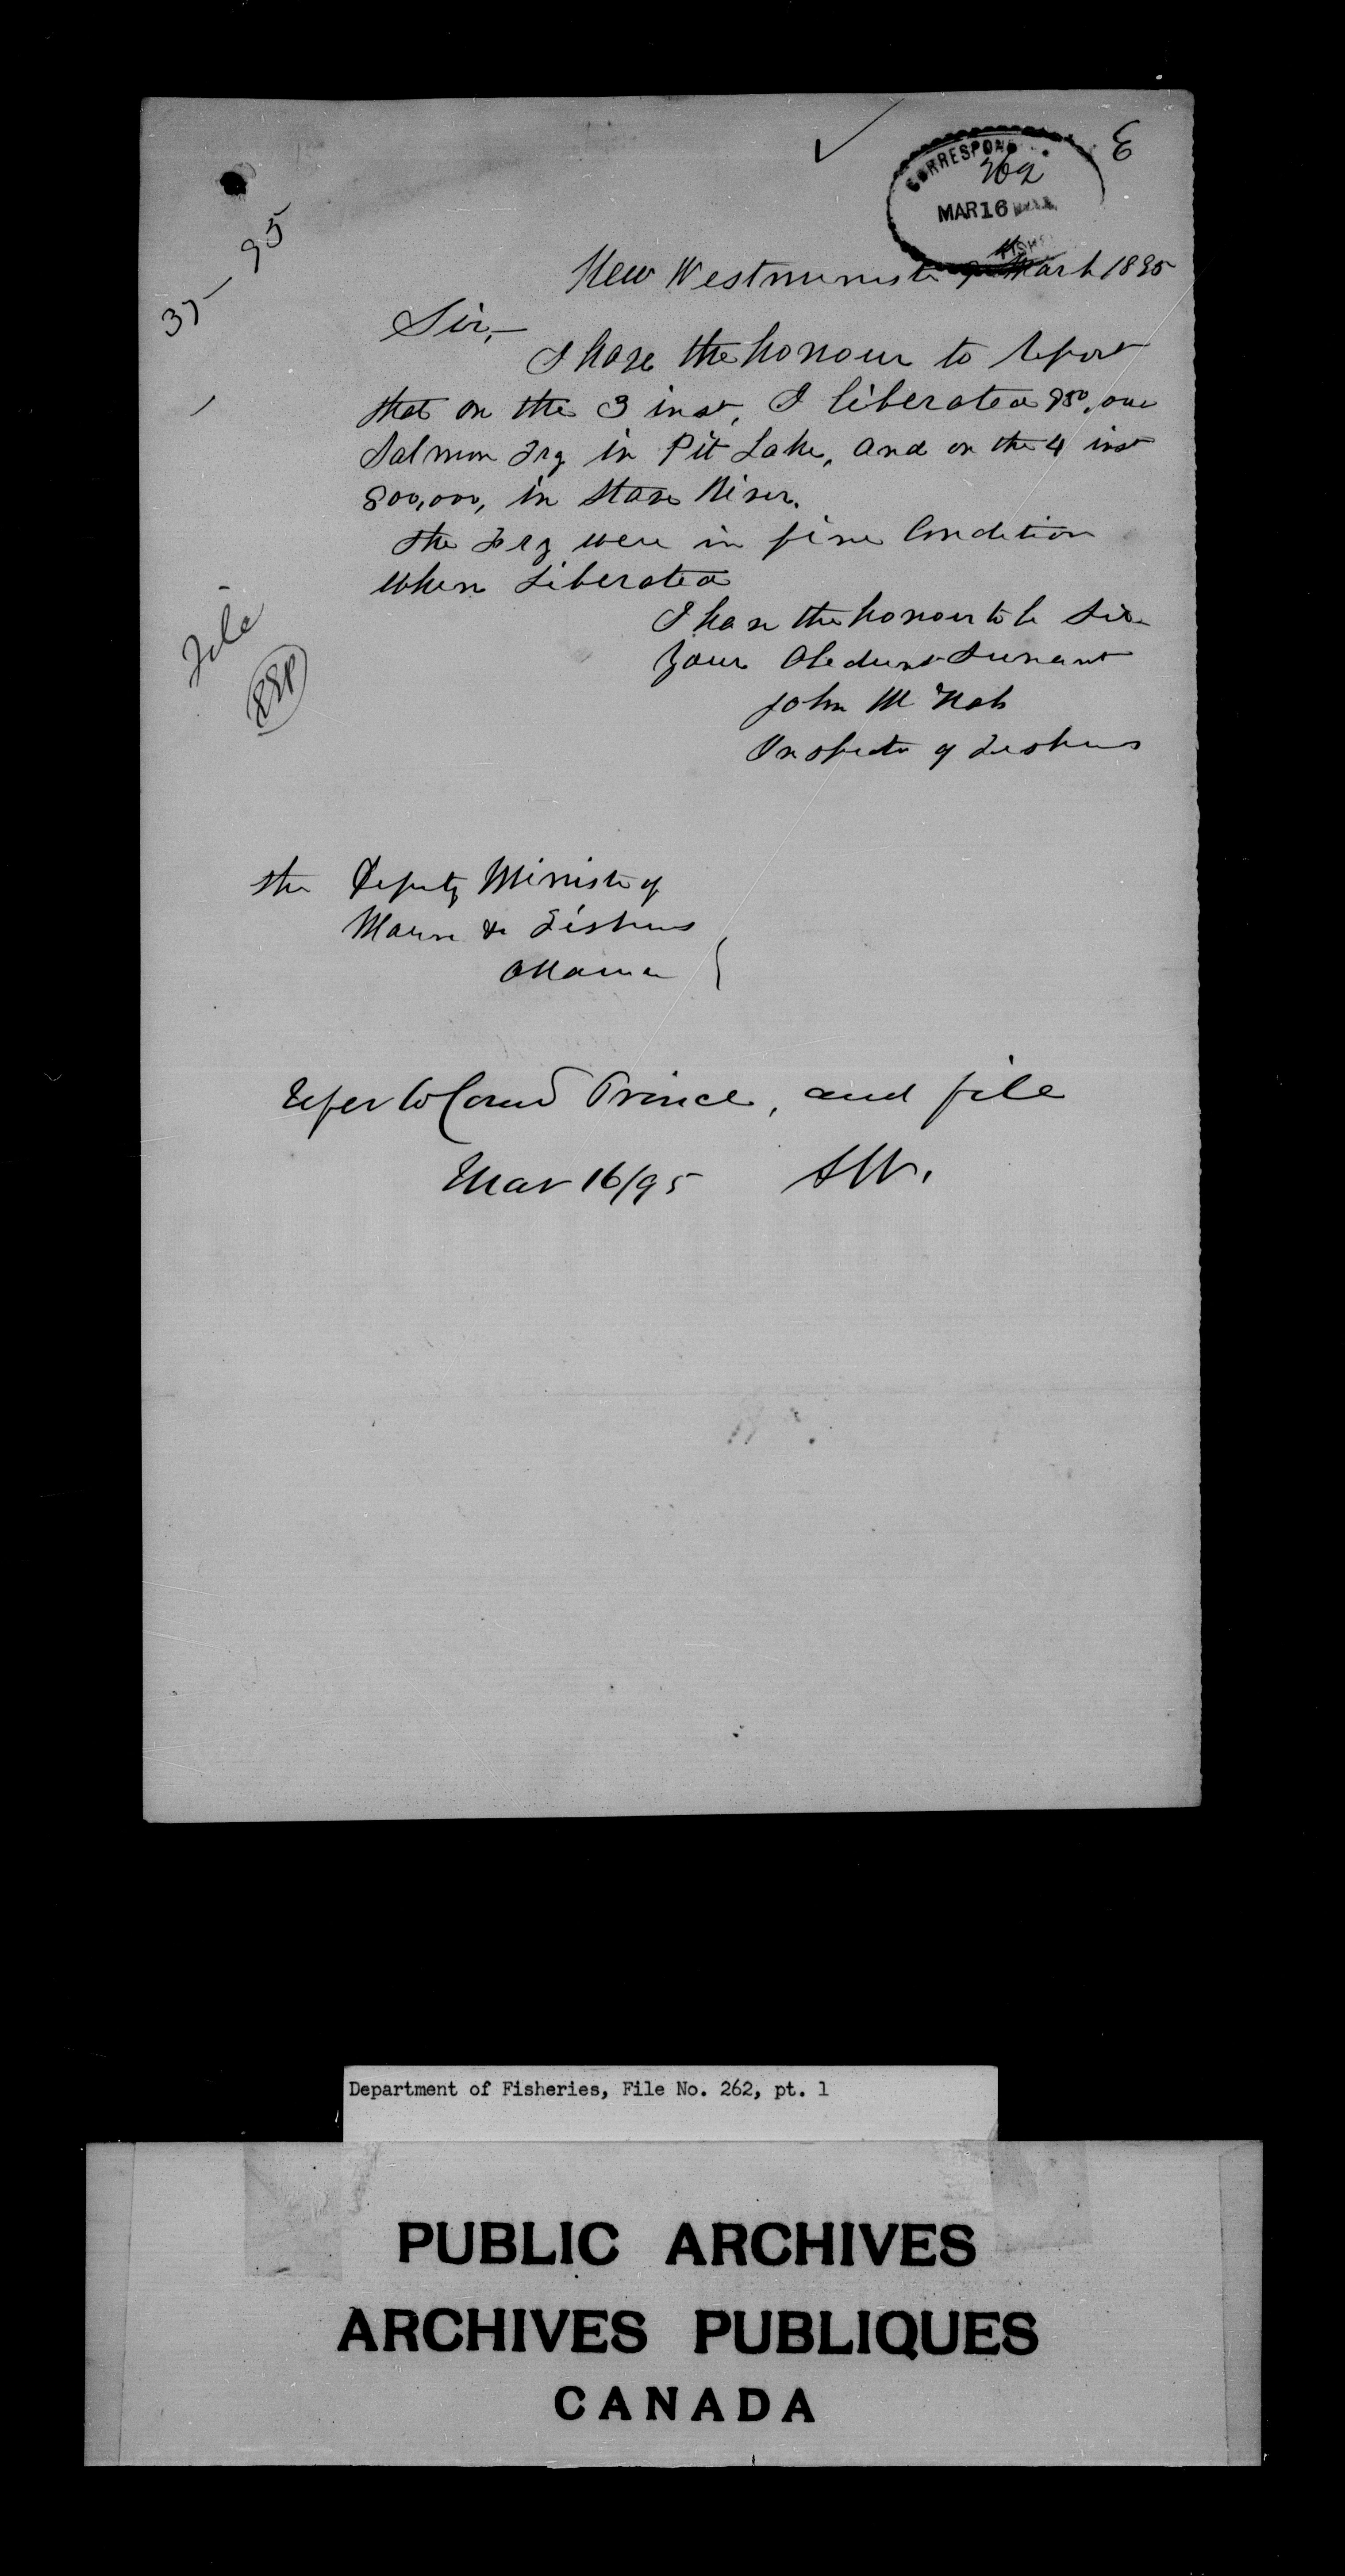 E
CORRESPOND
262
MAR 16
37 - 95
New Westminster 9 March 1895
Sir,
I have the honour to report
that on the 3 inst, I liberated 950,000
Salmon Fry in Pit Lake, and on the 4 inst
800,000, in Stave River.
The Fry were in fine Condition
when Liberated
I have the honour to be Sir
Your Obedient Servant
John McNab
Inspector of Fisheries
File
EEP
The Deputy Minister of
Marine & Fisheries
Ottawa
Refer to Comr Prince, and file
Mar 16/95 SW.
Department of Fisheries, File No. 262, pt. 1
PUBLIC ARCHIVES
ARCHIVES PUBLIQUES
CANADA